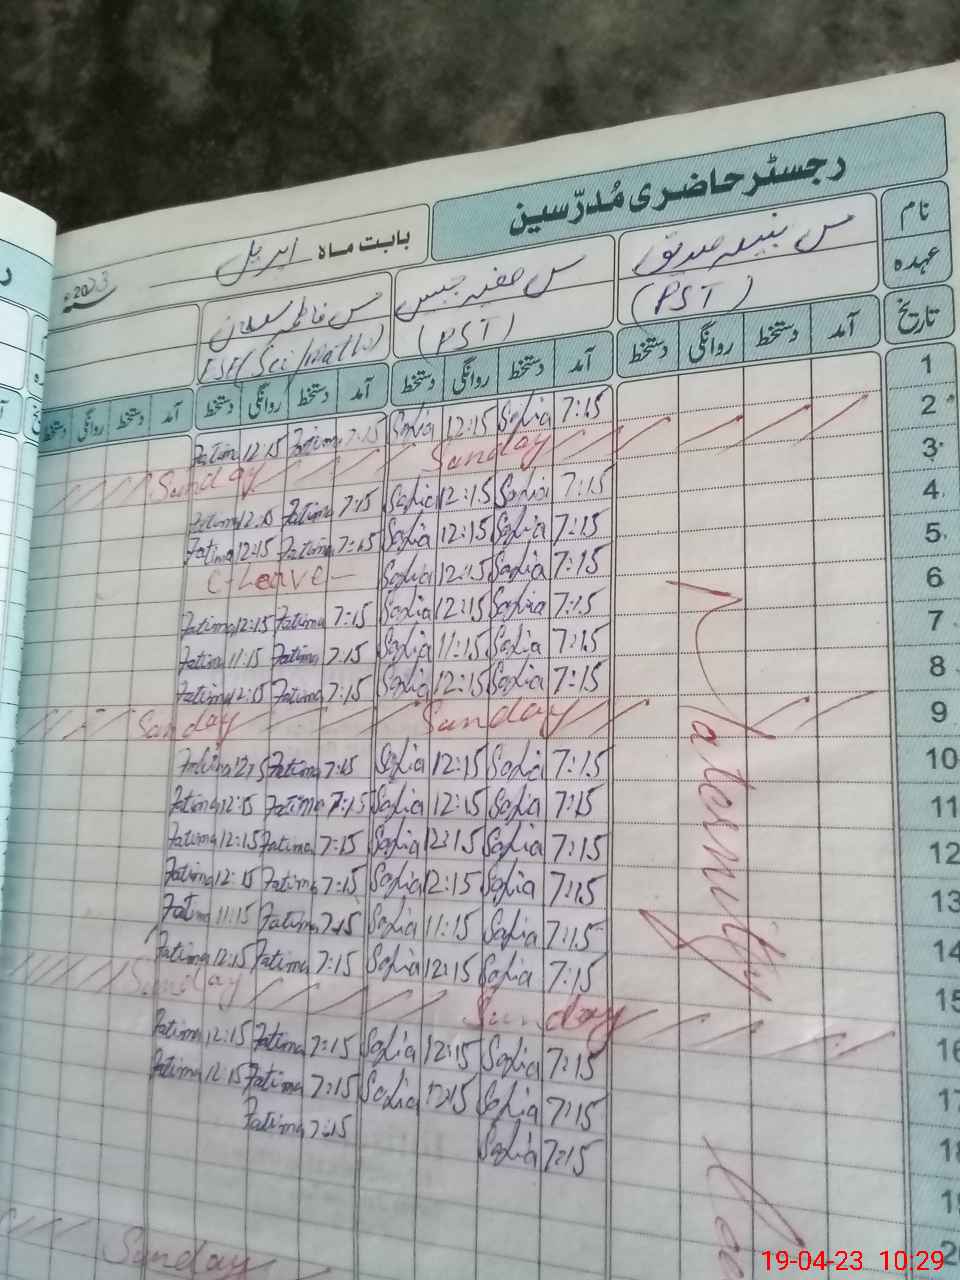 رجسٹر حاضری مُدرّسین
بابت ماہ اپریل 2023ء
نام
مس صدیق
مس صفیہ
مس فاطمہ
عہدہ
(PST)
(PST)
EST (Sci/Math)
تاریخ آمد دستخط روانگی دستخط آمد دستخط روانگی دستخط آمد دستخط روانگی دستخط آمد دستخط روانگی دستخط
1 7:15 Safia 12:15 Safia 7:15 Fatima 12:15 Fatima
2 Sunday Sunday
3 7:15 Safia 12:15 Safia 7:15 Fatima 12:15 Fatima
4 7:15 Safia 12:15 Safia 7:15 Fatima 12:15 Fatima
5 7:15 Safia 12:15 Safia C-Leave
6 7:15 Safia 12:15 Safia 7:15 Fatima 12:15 Fatima
7 7:15 Safia 11:15 Safia 7:15 Fatima 11:15 Fatima
8 7:15 Safia 12:15 Safia 7:15 Fatima 12:15 Fatima
9 Sunday Sunday
10 7:15 Safia 12:15 Safia 7:15 Fatima 12:15 Fatima
11 7:15 Safia 12:15 Safia 7:15 Fatima 12:15 Fatima
12 7:15 Safia 12:15 Safia 7:15 Fatima 12:15 Fatima
13 7:15 Safia 12:15 Safia 7:15 Fatima 12:15 Fatima
14 7:15 Safia 11:15 Safia 7:15 Fatima 11:15 Fatima
15 7:15 Safia 12:15 Safia 7:15 Fatima 12:15 Fatima
16 Sunday Sunday
17 7:15 Safia 12:15 Safia 7:15 Fatima 12:15 Fatima
18 7:15 Safia 12:15 Safia 7:15 Fatima 12:15 Fatima
19 7:15 Safia 7:15 Fatima
Maternity
Sunday
19-04-23 10:29